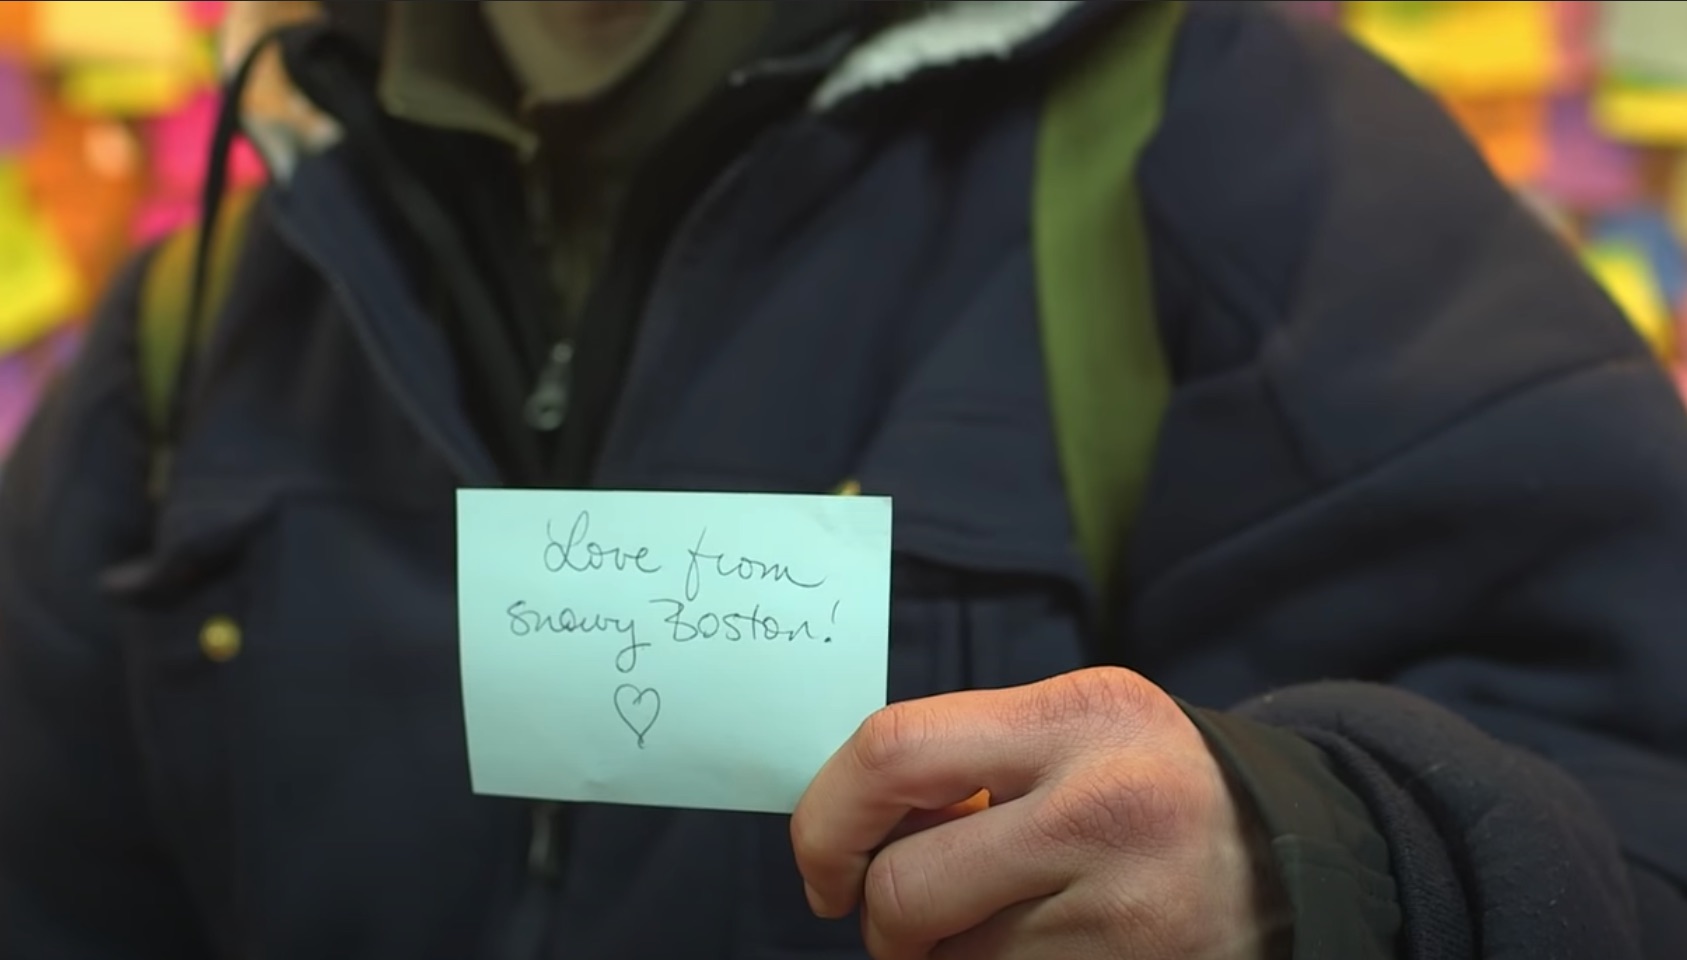 Love from
snowy Boston!